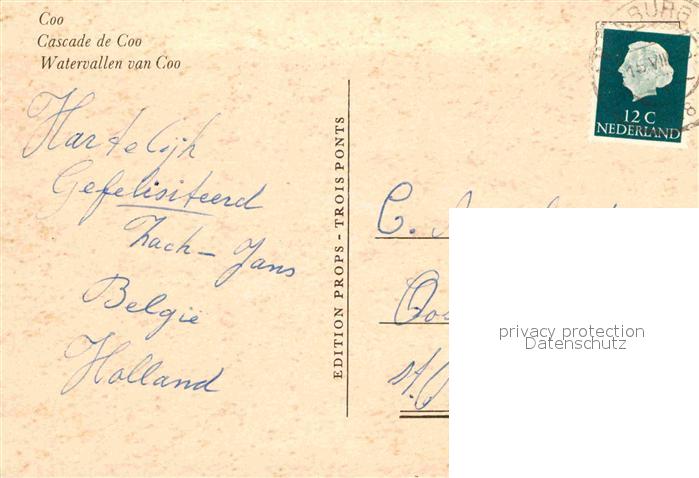 Coo
Cascade de Coo
Watervallen van Coo
Hartelijk
Gefelisiteerd
Zach- Jans
België
Holland
EDITION PROPS - TROIS PONTS
12 C
NEDERLAND
15 VIII
C.
privacy protection
Datenschutz